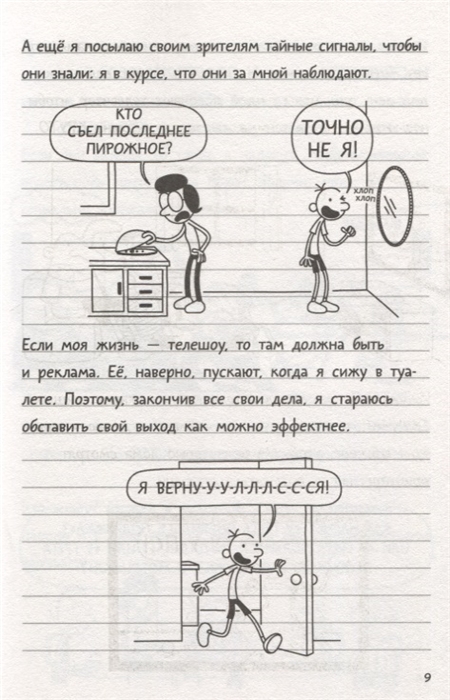 А ещё я посылаю своим зрителям тайные сигналы, чтобы
они знали: я в курсе, что они за мной наблюдают.
КТО
СЪЕЛ ПОСЛЕДНЕЕ
ПИРОЖНОЕ?
ТОЧНО
НЕ Я!
ХЛОП
ХЛОП
Если моя жизнь — телешоу, то там должна быть
и реклама. Её, наверно, пускают, когда я сижу в туа-
лете. Поэтому, закончив все свои дела, я стараюсь
обставить свой выход как можно эффектнее.
Я ВЕРНУ-У-У-Л-Л-Л-С-С-СЯ!
9